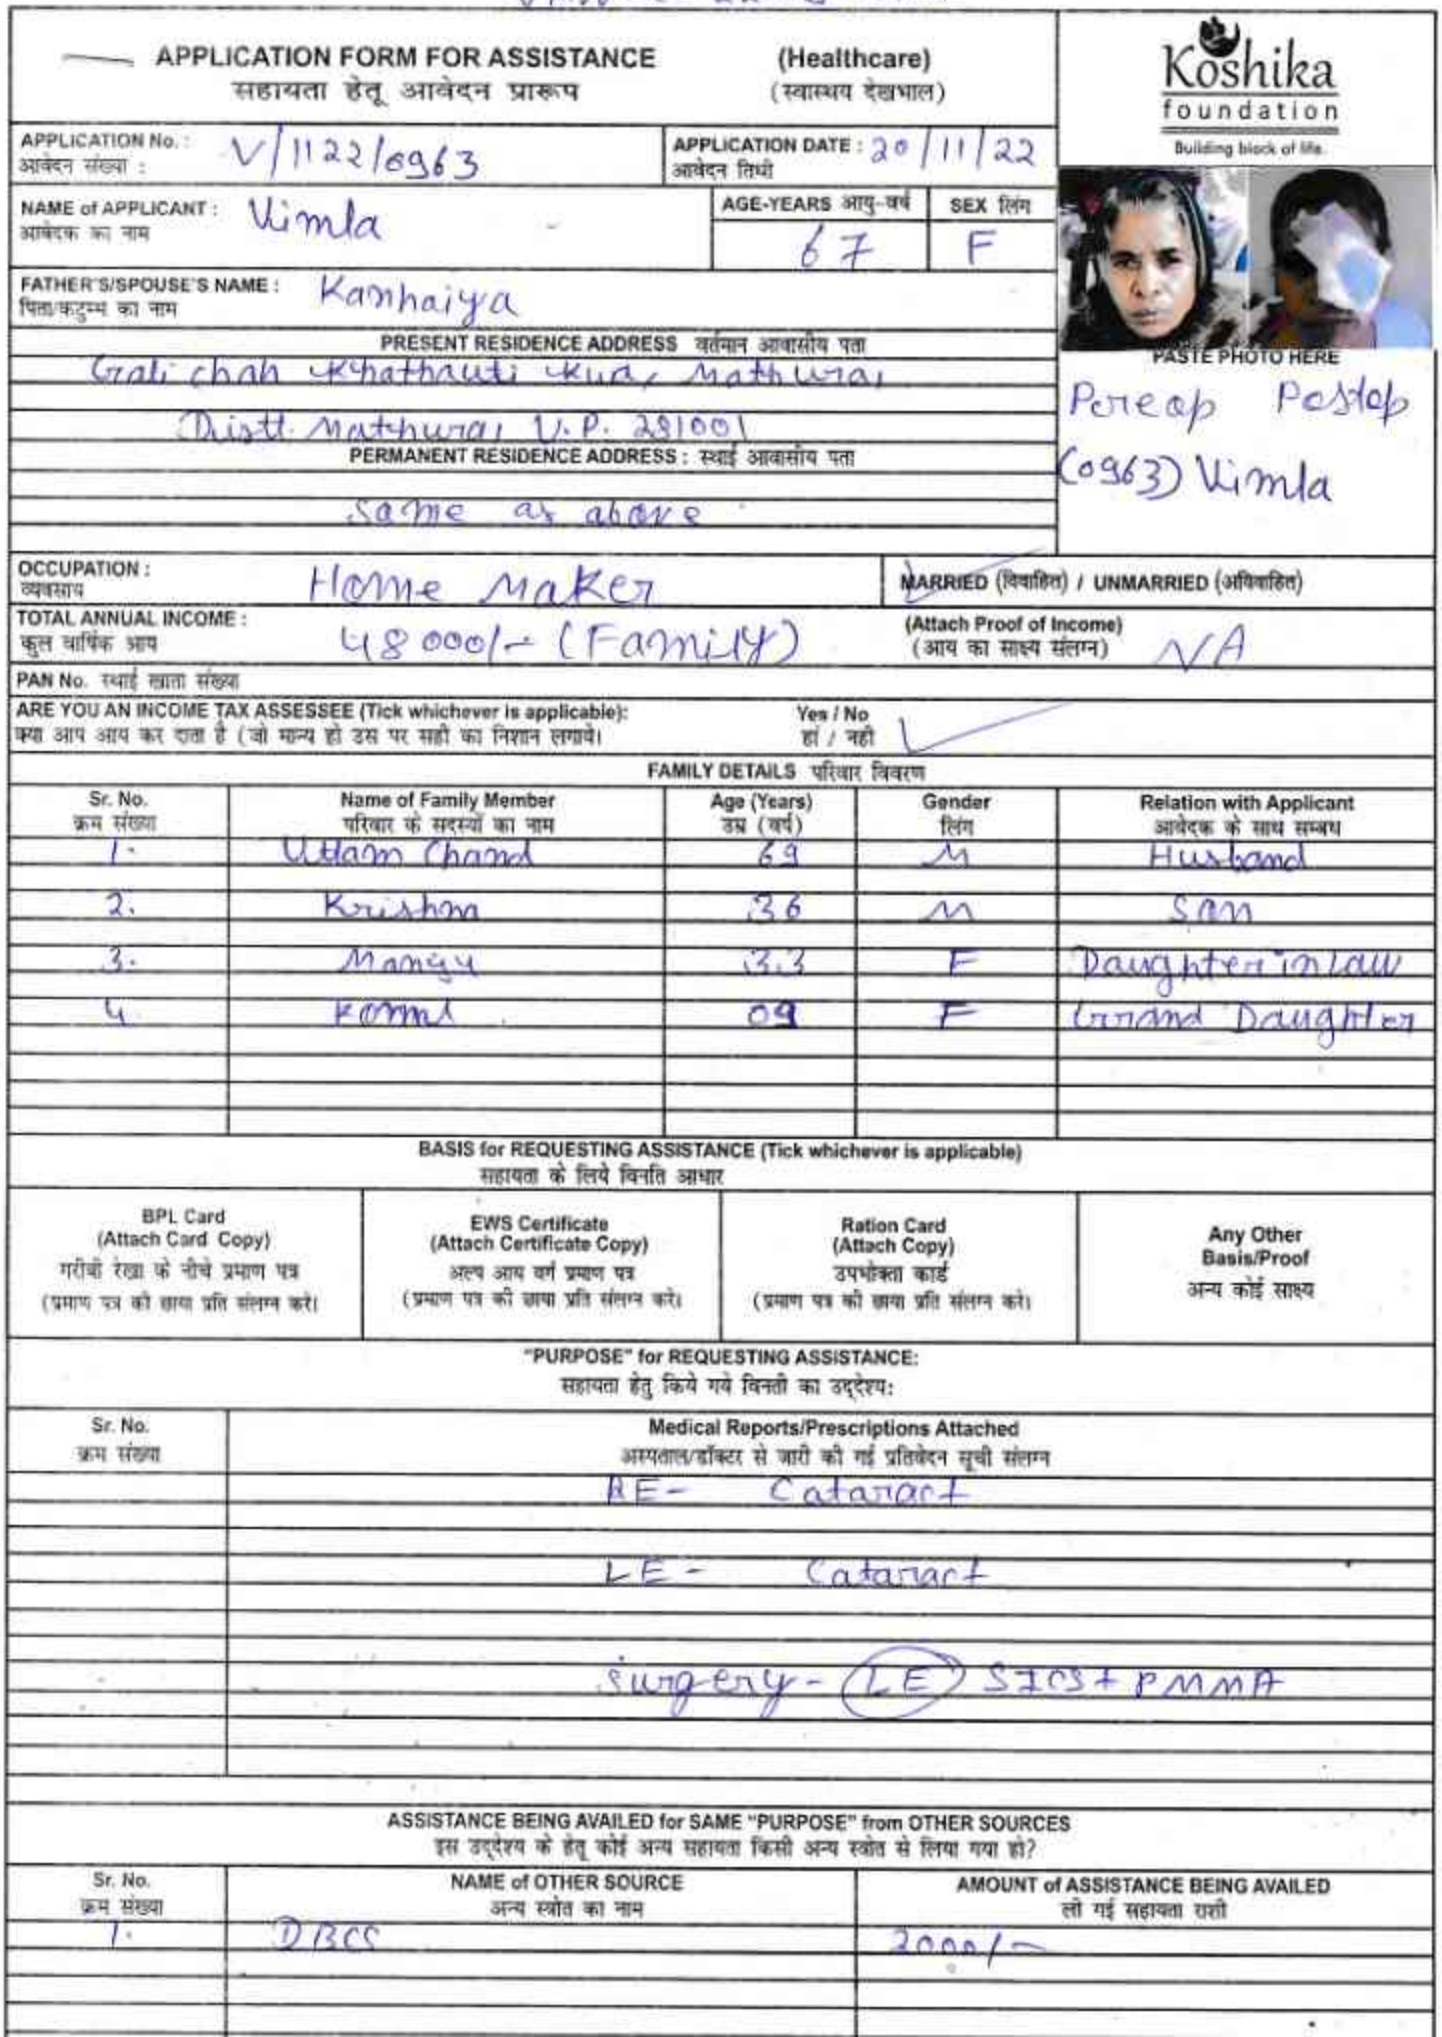 APPLICATION FORM FOR ASSISTANCE (Healthcare)
सहायता हेतू आवेदन प्रारूप (स्वास्थय देखभाल)
Koshika
foundation
Building block of life.
APPLICATION No. : V/1122/0963 APPLICATION DATE : 20/11/22
आवेदन संख्या : आवेदन तिथी
NAME of APPLICANT : Vimla AGE-YEARS आयु-वर्ष SEX लिंग
आवेदक का नाम 67 F
FATHER'S/SPOUSE'S NAME : Kanhaiya
पिता/कटुम्भ का नाम
PRESENT RESIDENCE ADDRESS वर्तमान आवासीय पता
Gali chah Khathauti Kua, Mathura,
Distt. Mathura, U.P. 281001
PERMANENT RESIDENCE ADDRESS : स्थाई आवासीय पता
Same as above
PASTE PHOTO HERE
Pereop Postop
(0963) Vimla
OCCUPATION : Home Maker MARRIED (विवाहित) / UNMARRIED (अविवाहित)
व्यवसाय
TOTAL ANNUAL INCOME : 48000/- (Family) (Attach Proof of Income) NA
कुल वार्षिक आय (आय का साक्ष्य संलग्न)
PAN No. स्थाई खाता संख्या
ARE YOU AN INCOME TAX ASSESSEE (Tick whichever is applicable): Yes / No
क्या आप आय कर दाता है (जो मान्य हो उस पर सही का निशान लगाये। हां / नही
FAMILY DETAILS परिवार विवरण
Sr. No. Name of Family Member Age (Years) Gender Relation with Applicant
क्रम संख्या परिवार के सदस्यों का नाम उम्र (वर्ष) लिंग आवेदक के साथ सम्बध
1. Uttam Chand 69 M Husband
2. Krishna 36 M Son
3. 33 F Daughter in law
4. 09 F Grand Daughter
BASIS for REQUESTING ASSISTANCE (Tick whichever is applicable)
सहायता के लिये विनति आधार
BPL Card
(Attach Card Copy)
गरीबी रेखा के नीचे प्रमाण पत्र
(प्रमाण पत्र की छाया प्रति संलग्न करे।
EWS Certificate
(Attach Certificate Copy)
अल्प आय वर्ग प्रमाण पत्र
(प्रमाण पत्र की छाया प्रति संलग्न करे।
Ration Card
(Attach Copy)
उपभोक्ता कार्ड
(प्रमाण पत्र की छाया प्रति संलग्न करे।
Any Other
Basis/Proof
अन्य कोई साक्ष्य
"PURPOSE" for REQUESTING ASSISTANCE:
सहायता हेतु किये गये विनती का उद्देश्य:
Sr. No. Medical Reports/Prescriptions Attached
क्रम संख्या अस्पताल/डॉक्टर से जारी की गई प्रतिवेदन सूची संलग्न
RE- Cataract
LE- Cataract
Surgery- LE SICS + PMMA
ASSISTANCE BEING AVAILED for SAME "PURPOSE" from OTHER SOURCES
इस उद्देश्य के हेतू कोई अन्य सहायता किसी अन्य स्त्रोत से लिया गया हो?
Sr. No. NAME of OTHER SOURCE AMOUNT of ASSISTANCE BEING AVAILED
क्रम संख्या अन्य स्त्रोत का नाम ली गई सहायता राशी
1. DBCS 2000/-